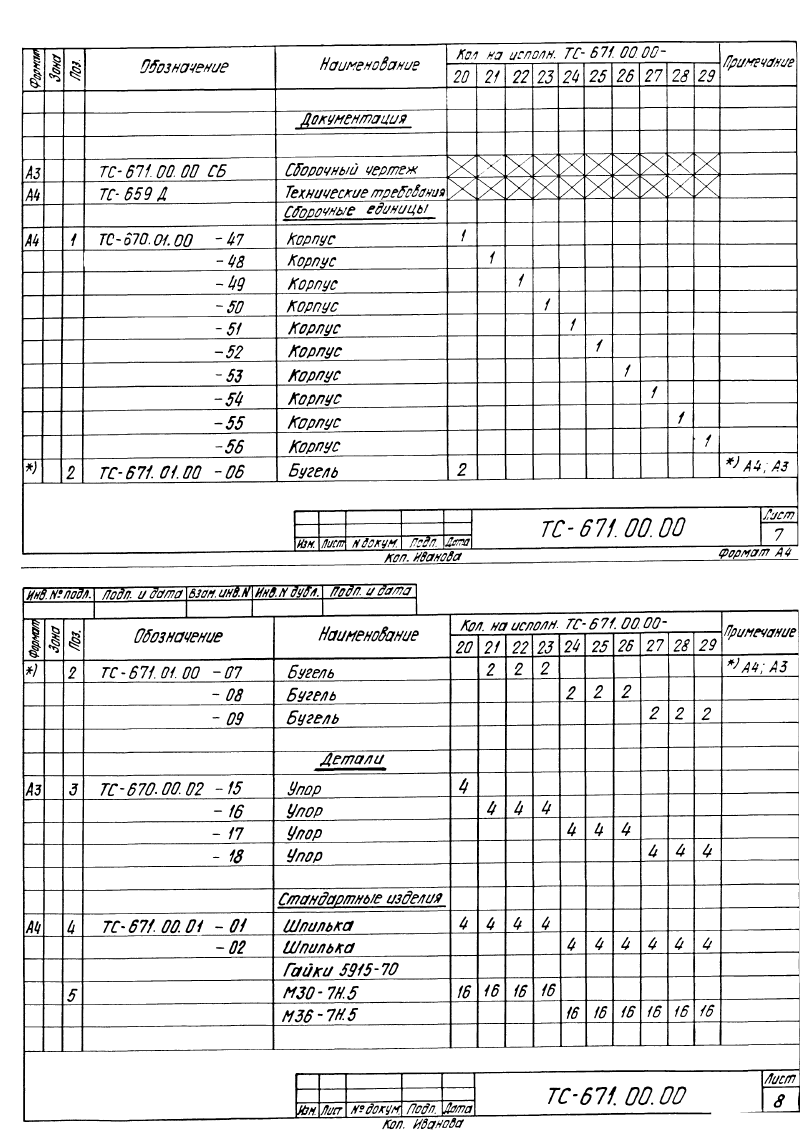 Формат Зона Поз. Обозначение Наименование Кол. на исполн. ТС-671.00.00- Примечание
20 21 22 23 24 25 26 27 28 29
Документация
А3 ТС-671.00.00 СБ Сборочный чертеж
А4 ТС-659 Д Технические требования
Сборочные единицы
А4 1 ТС-670.01.00 -47 Корпус 1
-48 Корпус 1
-49 Корпус 1
-50 Корпус 1
-51 Корпус 1
-52 Корпус 1
-53 Корпус 1
-54 Корпус 1
-55 Корпус 1
-56 Корпус 1
*) 2 ТС-671.01.00 -06 Бугель 2 *) А4; А3
ТС-671.00.00 Лист 7
Изм. Лист N докум. Подп. Дата
Коп. Иванова Формат А4
Инв. № подл. Подп. и дата Взам. инв. N Инв. N дубл. Подп. и дата
Формат Зона Поз. Обозначение Наименование Кол. на исполн. ТС-671.00.00- Примечание
20 21 22 23 24 25 26 27 28 29
*) 2 ТС-671.01.00 -07 Бугель 2 2 2 *) А4; А3
-08 Бугель 2 2 2
-09 Бугель 2 2 2
Детали
А3 3 ТС-670.00.02 -15 Упор 4
-16 Упор 4 4 4
-17 Упор 4 4 4
-18 Упор 4 4 4
Стандартные изделия
А4 4 ТС-671.00.01 -01 Шпилька 4 4 4 4
-02 Шпилька 4 4 4 4 4 4
Гайки 5915-70
5 М30-7Н.5 16 16 16 16
М36-7Н.5 16 16 16 16 16 16
ТС-671.00.00 Лист 8
Изм. Лист № докум. Подп. Дата
Коп. Иванова